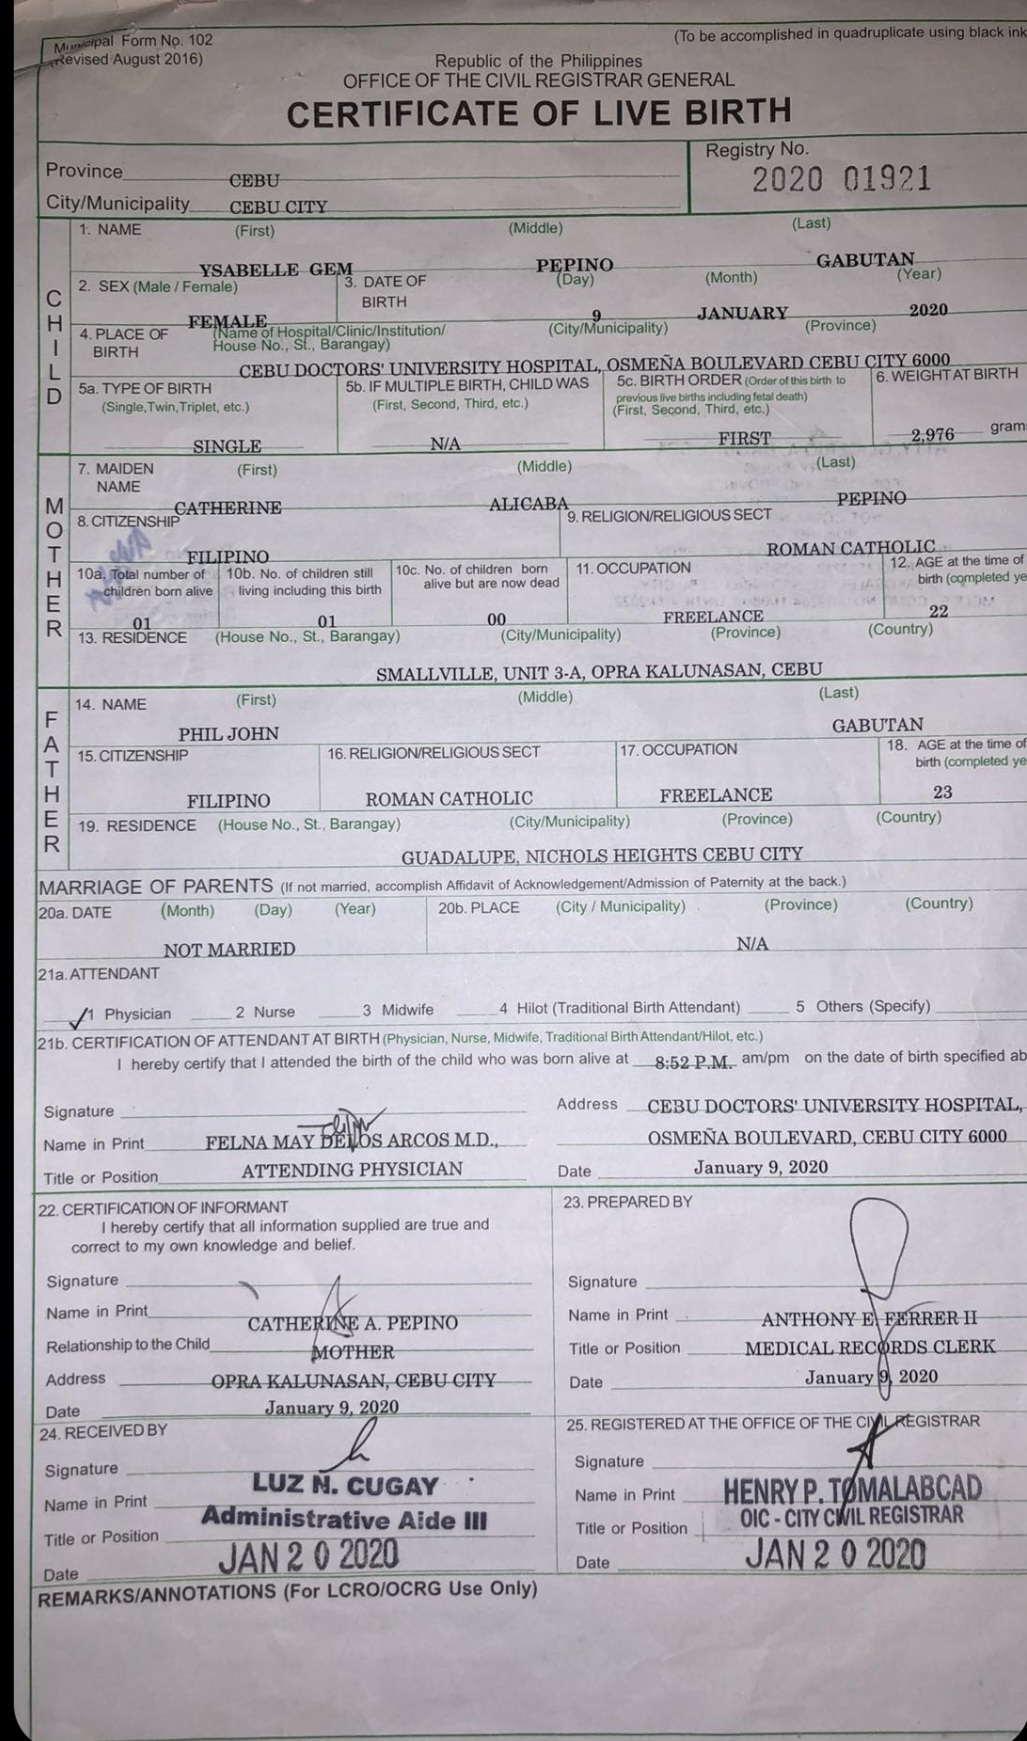 Municipal Form No. 102
(Revised August 2016)
(To be accomplished in quadruplicate using black ink
Republic of the Philippines
OFFICE OF THE CIVIL REGISTRAR GENERAL
CERTIFICATE OF LIVE BIRTH
Province CEBU
City/Municipality CEBU CITY
Registry No.
2020 01921
CHILD
1. NAME (First) (Middle) (Last)
YSABELLE GEM PEPINO GABUTAN
2. SEX (Male / Female) 3. DATE OF BIRTH (Day) (Month) (Year)
FEMALE 9 JANUARY 2020
4. PLACE OF BIRTH (Name of Hospital/Clinic/Institution/ House No., St., Barangay) (City/Municipality) (Province)
CEBU DOCTORS' UNIVERSITY HOSPITAL, OSMEÑA BOULEVARD CEBU CITY 6000
5a. TYPE OF BIRTH (Single,Twin,Triplet, etc.) 5b. IF MULTIPLE BIRTH, CHILD WAS (First, Second, Third, etc.) 5c. BIRTH ORDER (Order of this birth to previous live births including fetal death) (First, Second, Third, etc.) 6. WEIGHT AT BIRTH
SINGLE N/A FIRST 2,976 grams
MOTHER
7. MAIDEN NAME (First) (Middle) (Last)
CATHERINE ALICABA PEPINO
8. CITIZENSHIP 9. RELIGION/RELIGIOUS SECT
FILIPINO ROMAN CATHOLIC
10a. Total number of children born alive 10b. No. of children still living including this birth 10c. No. of children born alive but are now dead 11. OCCUPATION 12. AGE at the time of birth (completed ye
01 01 00 FREELANCE 22
13. RESIDENCE (House No., St., Barangay) (City/Municipality) (Province) (Country)
SMALLVILLE, UNIT 3-A, OPRA KALUNASAN, CEBU
FATHER
14. NAME (First) (Middle) (Last)
PHIL JOHN GABUTAN
15. CITIZENSHIP 16. RELIGION/RELIGIOUS SECT 17. OCCUPATION 18. AGE at the time of birth (completed ye
FILIPINO ROMAN CATHOLIC FREELANCE 23
19. RESIDENCE (House No., St., Barangay) (City/Municipality) (Province) (Country)
GUADALUPE, NICHOLS HEIGHTS CEBU CITY
MARRIAGE OF PARENTS (If not married, accomplish Affidavit of Acknowledgement/Admission of Paternity at the back.)
20a. DATE (Month) (Day) (Year) 20b. PLACE (City / Municipality) (Province) (Country)
NOT MARRIED N/A
21a. ATTENDANT
✓1 Physician 2 Nurse 3 Midwife 4 Hilot (Traditional Birth Attendant) 5 Others (Specify)
21b. CERTIFICATION OF ATTENDANT AT BIRTH (Physician, Nurse, Midwife, Traditional Birth Attendant/Hilot, etc.)
I hereby certify that I attended the birth of the child who was born alive at 8:52 P.M. am/pm on the date of birth specified ab
Signature
Name in Print FELNA MAY DELOS ARCOS M.D.,
Title or Position ATTENDING PHYSICIAN
Address CEBU DOCTORS' UNIVERSITY HOSPITAL,
OSMEÑA BOULEVARD, CEBU CITY 6000
Date January 9, 2020
22. CERTIFICATION OF INFORMANT
I hereby certify that all information supplied are true and
correct to my own knowledge and belief.
Signature
Name in Print CATHERINE A. PEPINO
Relationship to the Child MOTHER
Address OPRA KALUNASAN, CEBU CITY
Date January 9, 2020
23. PREPARED BY
Signature
Name in Print ANTHONY E. FERRER II
Title or Position MEDICAL RECORDS CLERK
Date January 9, 2020
24. RECEIVED BY
Signature
Name in Print LUZ N. CUGAY
Title or Position Administrative Aide III
Date JAN 20 2020
25. REGISTERED AT THE OFFICE OF THE CIVIL REGISTRAR
Signature
Name in Print HENRY P. TOMALABCAD
Title or Position OIC - CITY CIVIL REGISTRAR
Date JAN 20 2020
REMARKS/ANNOTATIONS (For LCRO/OCRG Use Only)